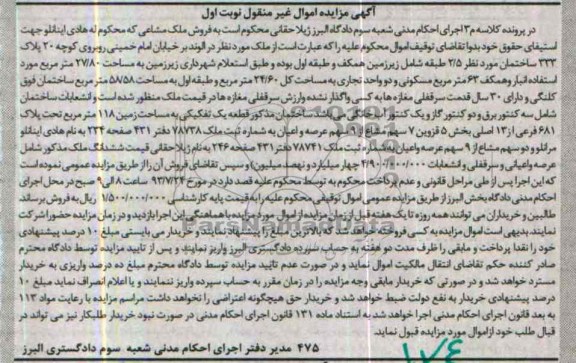 آگهی مزایده اموال غیر منقول نوبت اول
در پرونده کلاسه م۳ اجرای احکام مدنی شعبه سوم دادگاه البرز ژیلا حقانی محکوم است به فروش ملک مشاعی که محکوم له هادی اینانلو جهت
استیفای حقوق خود بدوا تقاضای توقیف اموال محکوم علیه را که عبارت است از ملک مورد نظر در الوند بر خیابان امام خمینی روبروی کوچه ۲۰ پلاک
۳۳۳ ساختمان مورد نظر ۲/۵ طبقه شامل زیرزمین همکف و طبقه اول بوده و طبق استعلام شهرداری زیرزمین به مساحت ۲۷/۸۰ متر مربع مورد
استفاده انبار و همکف ۶۳ متر مربع مسکونی و دو واحد تجاری به مساحت کل ۲۴/۶۰ متر مربع و طبقه اول به مساحت ۵۸/۵۸ متر مربع ساختمان فوق
کلنگی و دارای ۳۰ سال قدمت سرقفلی مغازه ها به کسی واگذار نشده و ارزش سرقفلی مغازه ها در قیمت ملک منظور شده است و انشعابات ساختمان
شامل سه کنتور برق و دو کنتور گاز و یک کنتور آب خانگی می باشد ساختمان مذکور قطعه یک تفکیکی به مساحت زمین ۱۱۸ متر مربع تحت پلاک
۶۸۱ فرعی از ۱۳ اصلی بخش ۵ قزوین ۷ سهم مشاع از ۹ سهم عرصه و اعیان به شماره ثبت ملک ۷۸۷۳۸ دفتر ۴۳۱ صفحه ۲۳۴ به نام هادی اینانلو
مرانلو و دو سهم مشاع از ۹ سهم عرصه و اعیان به شماره ثبت ملک ۷۸۷۴۱ دفتر ۴۳۱ صفحه ۲۴۶ به نام ژیلا حقانی قیمت ششدانگ ملک مذکور شامل
عرصه و اعیانی و سرقفلی و انشعابات ۴/۹۰۰/۰۰۰/۰۰۰ چهار میلیارد و نهصد میلیون) و سپس تقاضای فروش آن را از طریق مزایده عمومی نموده است
که این اجرا پس از طی مراحل قانونی و عدم پرداخت محکوم به توسط محکوم علیه قصد دارد در مورخ ۹۳/۷/۲۴ ساعت ۸ الی ۹ صبح در محل اجرای
احکام مدنی دادگاه بخش البرز از طریق مزایده عمومی اموال توقیفی محکوم علیه را به قیمت پایه کارشناسی ۱/۵۰۰/۰۰۰/۰۰۰ ریال به فروش برساند.
طالبین و خریداران می توانند همه روزه تا یک هفته قبل از زمان مزایده از اموال مورد مزایده با هماهنگی این اجرا بازدید و در زمان مزایده حضور شرکت
نمایند. بدیهی است اموال مزایده به کسی فروخته خواهد شد که بالاترین مبلغ را پیشنهاد نماید. خریدار می بایستی مبلغ ۱۰ درصد پیشنهادی
خود را نقدا پرداخت و مابقی را ظرف مدت دو هفته به حساب سپرده دادگستری البرز واریز نمایند و پس از تایید مزایده توسط دادگاه محترم
صادر کننده حکم تقاضای انتقال مالکیت اموال نماید و در صورت عدم تایید مزایده توسط دادگاه محترم مبلغ ده درصد واریزی به خریدار
مسترد خواهد شد و در صورتی که خریدار مابقی وجه مزایده را در زمان مقرر به حساب سپرده واریز ننمایند و یا اعلام انصراف نماید مبلغ ۱۰
درصد پیشنهادی خریدار به نفع دولت ضبط خواهد شد و خریدار حق هیچگونه اعتراضی را نخواهد داشت مراسم مزایده با رعایت مواد ۱۱۳
به بعد قانون اجرای احکام مدنی اجرا خواهد شد به استناد ماده ۱۳۱ قانون اجرای احکام مدنی در صورت نبود خریدار طلبکار نیز می تواند در
قبال طلب خود از اموال مورد مزایده قبول نماید.
۴۷۵ مدیر دفتر اجرای احکام مدنی شعبه سوم دادگستری البرز